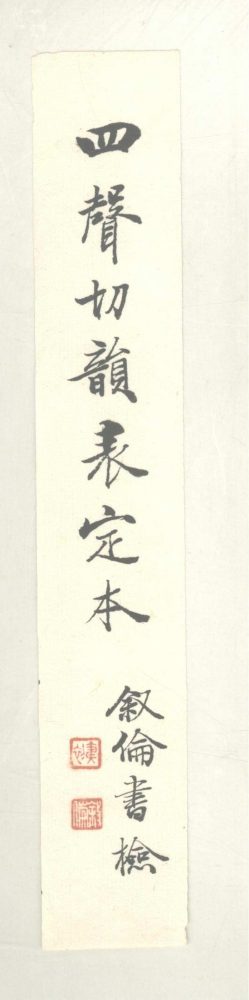 四聲切韻表定本
叙倫書檢